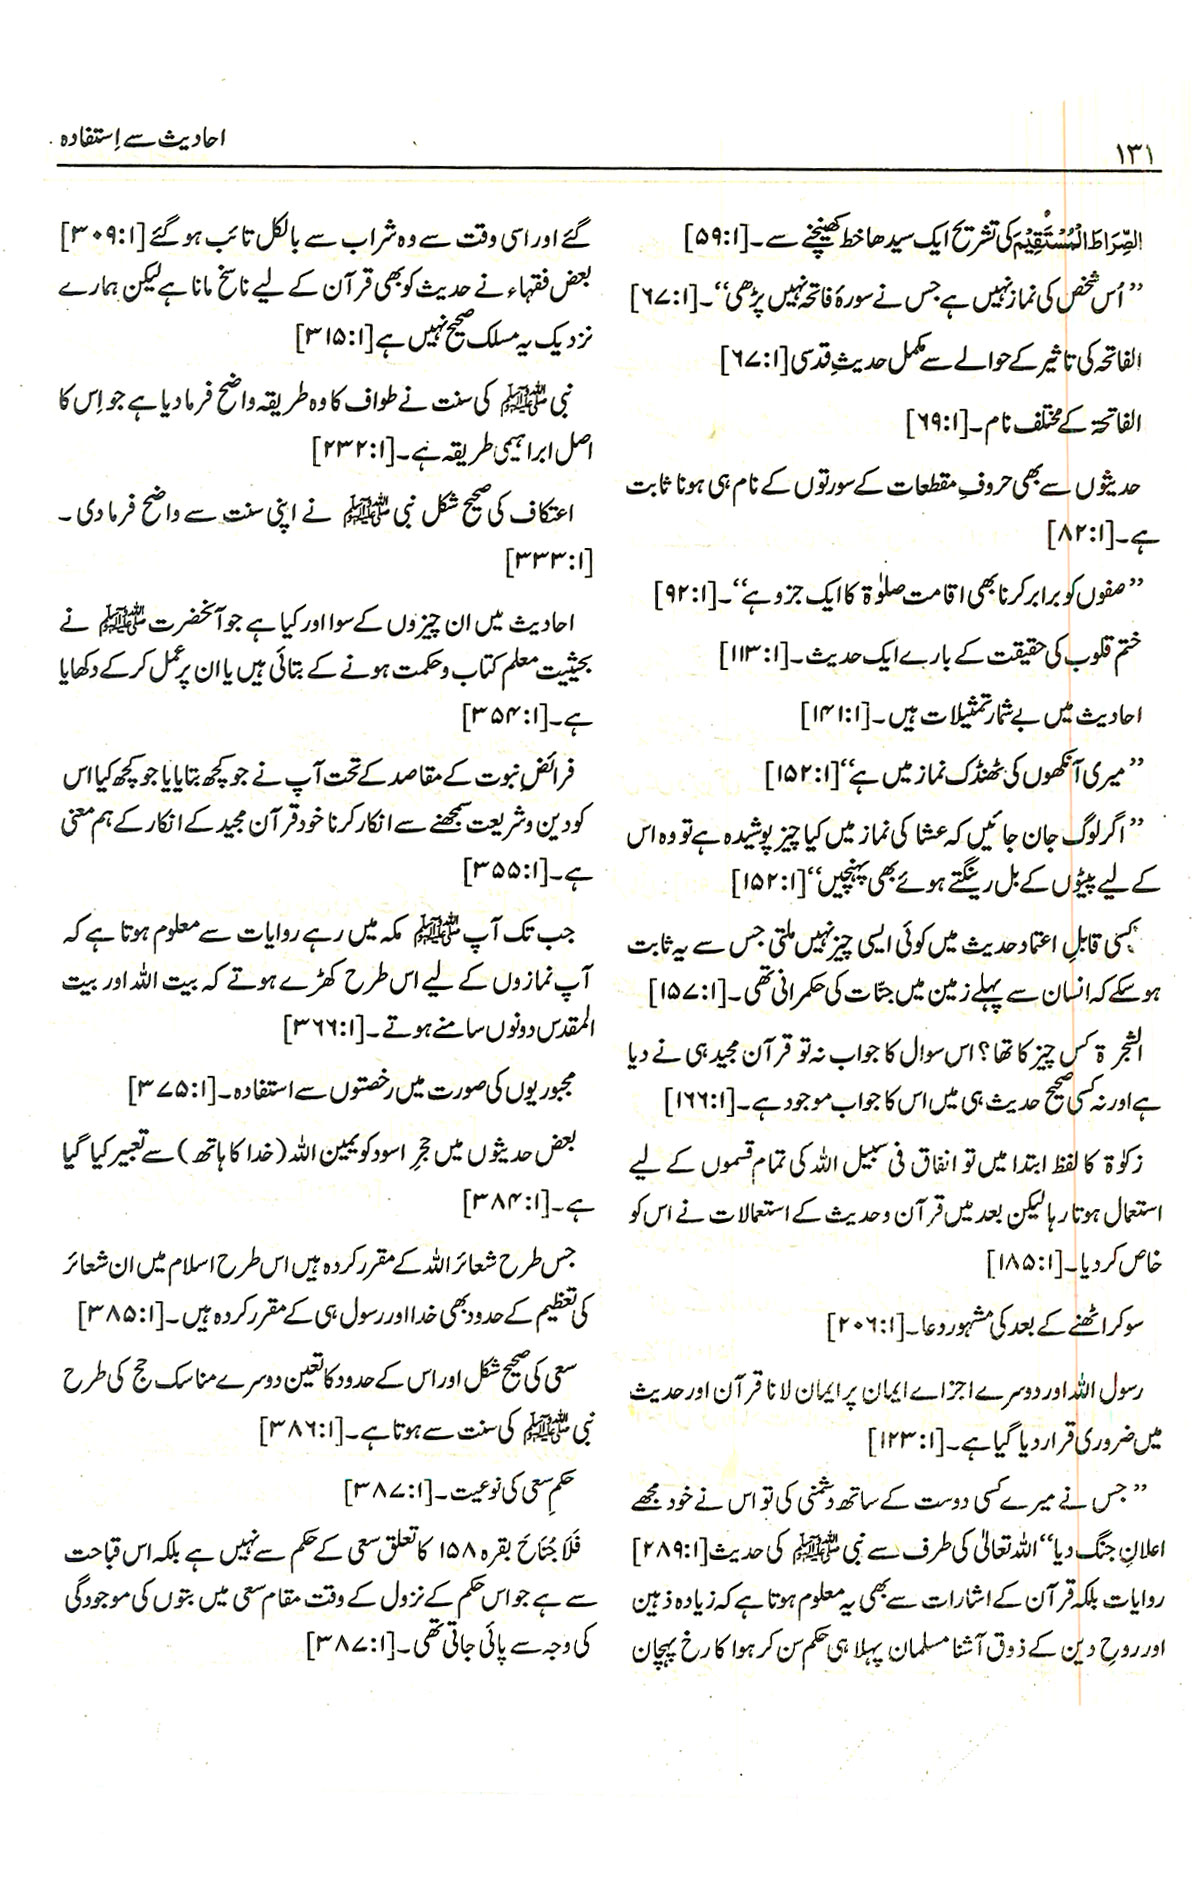 ۱۳۱
احادیث سے اِستفادہ
الصِّرَاطَ الْمُسْتَقِیْمَ کی تشریح ایک سیدھا خط کھینچنے سے۔[۵۹:۱]
”اُس شخص کی نماز نہیں ہے جس نے سورۂ فاتحہ نہیں پڑھی“۔[۶۷:۱]
الفاتحہ کی تاثیر کے حوالے سے مکمل حدیثِ قدسی [۶۷:۱]
الفاتحۃ کے مختلف نام۔[۶۹:۱]
حدیثوں سے بھی حروفِ مقطعات کے سورتوں کے نام ہی ہونا ثابت
ہے۔[۸۲:۱]
”صفوں کو برابر کرنا بھی اقامت صلوٰۃ کا ایک جزو ہے“۔[۹۲:۱]
ختم قلوب کی حقیقت کے بارے ایک حدیث۔[۱۱۳:۱]
احادیث میں بے شمار تمثیلات ہیں۔[۱۴۱:۱]
”میری آنکھوں کی ٹھنڈک نماز میں ہے“[۱۵۲:۱]
”اگر لوگ جان جائیں کہ عشا کی نماز میں کیا چیز پوشیدہ ہے تو وہ اس
کے لیے پیٹوں کے بل رینگتے ہوئے بھی پہنچیں“[۱۵۲:۱]
کسی قابلِ اعتماد حدیث میں کوئی ایسی چیز نہیں ملتی جس سے یہ ثابت
ہو سکے کہ انسان سے پہلے زمین میں جنّات کی حکمرانی تھی۔[۱۵۷:۱]
الشجرۃ کس چیز کا تھا؟ اس سوال کا جواب نہ تو قرآن مجید ہی نے دیا
ہے اور نہ کسی صحیح حدیث ہی میں اس کا جواب موجود ہے۔[۱۶۶:۱]
زکوٰۃ کا لفظ ابتدا میں تو انفاق فی سبیل اللہ کی تمام قسموں کے لیے
استعمال ہوتا رہا لیکن بعد میں قرآن و حدیث کے استعمالات نے اس کو
خاص کر دیا۔[۱۸۵:۱]
سو کر اٹھنے کے بعد کی مشہور دعا۔[۲۰۶:۱]
رسول اللہ اور دوسرے اجزاے ایمان پر ایمان لانا قرآن اور حدیث
میں ضروری قرار دیا گیا ہے۔[۱۲۳:۱]
”جس نے میرے کسی دوست کے ساتھ دشمنی کی تو اس نے خود مجھے
اعلانِ جنگ دیا“ اللہ تعالیٰ کی طرف سے نبی ﷺ کی حدیث [۲۸۹:۱]
روایات بلکہ قرآن کے اشارات سے بھی یہ معلوم ہوتا ہے کہ زیادہ ذہین
اور روحِ دین کے ذوق آشنا مسلمان پہلا ہی حکم سن کر ہوا کا رخ پہچان
گئے اور اسی وقت سے وہ شراب سے بالکل تائب ہو گئے [۳۰۹:۱]
بعض فقہاء نے حدیث کو بھی قرآن کے لیے ناسخ مانا ہے لیکن ہمارے
نزدیک یہ مسلک صحیح نہیں ہے [۳۱۵:۱]
نبی ﷺ کی سنت نے طواف کا وہ طریقہ واضح فرما دیا ہے جو اِس کا
اصل ابراہیمی طریقہ ہے۔[۲۳۲:۱]
اعتکاف کی صحیح شکل نبی ﷺ نے اپنی سنت سے واضح فرما دی۔
[۳۳۳:۱]
احادیث میں ان چیزوں کے سوا اور کیا ہے جو آنحضرت ﷺ نے
بحیثیت معلم کتاب و حکمت ہونے کے بتائی ہیں یا ان پر عمل کر کے دکھایا
ہے۔[۳۵۴:۱]
فرائضِ نبوت کے مقاصد کے تحت آپ نے جو کچھ بتایا یا جو کچھ کیا اس
کو دین و شریعت سمجھنے سے انکار کرنا خود قرآن مجید کے انکار کے ہم معنی
ہے۔[۳۵۵:۱]
جب تک آپ ﷺ مکہ میں رہے روایات سے معلوم ہوتا ہے کہ
آپ نمازوں کے لیے اس طرح کھڑے ہوتے کہ بیت اللہ اور بیت
المقدس دونوں سامنے ہوتے۔[۳۶۶:۱]
مجبوریوں کی صورت میں رخصتوں سے استفادہ۔[۳۷۵:۱]
بعض حدیثوں میں حجرِ اسود کو یمین اللہ (خدا کا ہاتھ) سے تعبیر کیا گیا
ہے۔[۳۸۴:۱]
جس طرح شعائر اللہ کے مقرر کردہ ہیں اس طرح اسلام میں ان شعائر
کی تعظیم کے حدود بھی خدا اور رسول ہی کے مقرر کردہ ہیں۔[۳۸۵:۱]
سعی کی صحیح شکل اور اس کے حدود کا تعین دوسرے مناسک حج کی طرح
نبی ﷺ کی سنت سے ہوتا ہے۔[۳۸۶:۱]
حکمِ سعی کی نوعیت۔[۳۸۷:۱]
فَلَا جُنَاحَ بقرہ ۱۵۸ کا تعلق سعی کے حکم سے نہیں ہے بلکہ اس قباحت
سے ہے جو اس حکم کے نزول کے وقت مقام سعی میں بتوں کی موجودگی
کی وجہ سے پائی جاتی تھی۔[۳۸۷:۱]